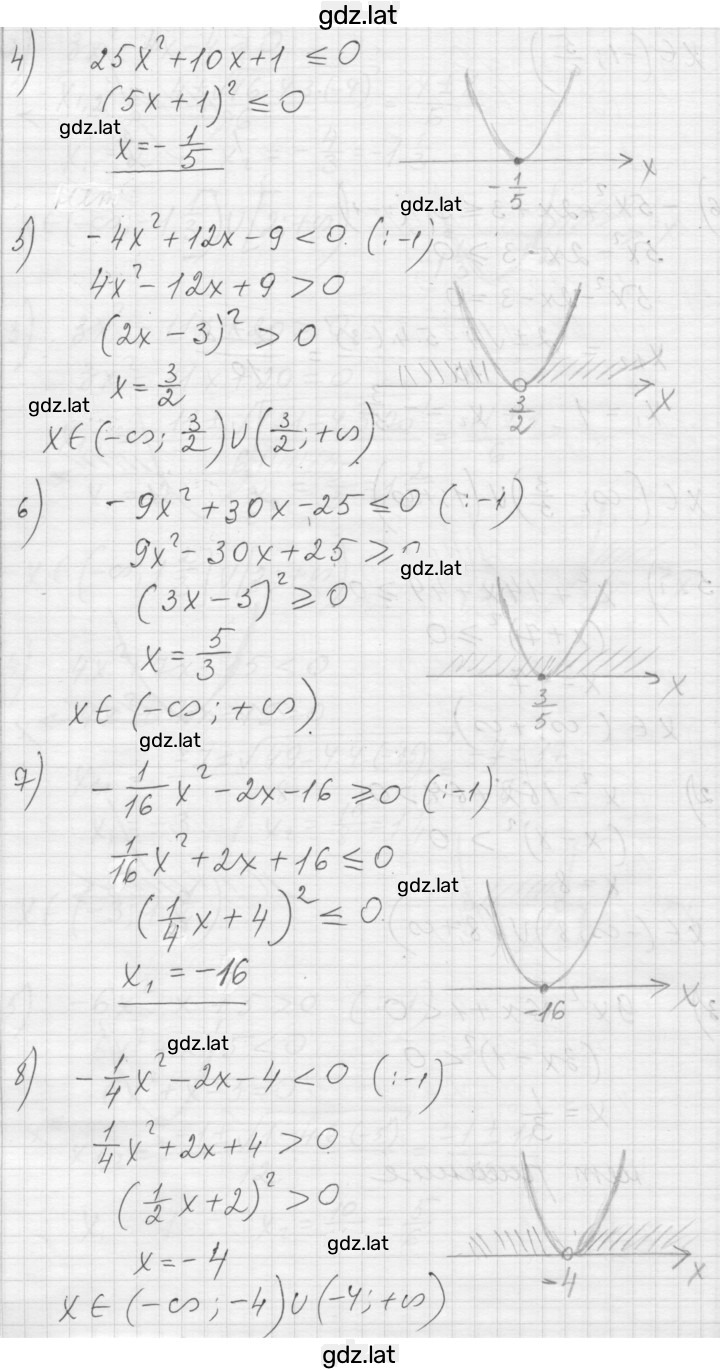 gdz.lat
4) 25x² + 10x + 1 ≤ 0
(5x + 1)² ≤ 0
gdz.lat
x = -1/5
x
-1/5
gdz.lat
5) -4x² + 12x - 9 < 0 (:-1)
4x² - 12x + 9 > 0
(2x - 3)² > 0
x = 3/2
gdz.lat
3/2
x
x ∈ (-∞; 3/2) ∪ (3/2; +∞)
6) -9x² + 30x - 25 ≤ 0 (:-1)
9x² - 30x + 25 ≥ 0
gdz.lat
(3x - 5)² ≥ 0
x = 5/3
x
3/5
x ∈ (-∞; +∞)
gdz.lat
7) -1/16 x² - 2x - 16 ≥ 0 (:-1)
1/16 x² + 2x + 16 ≤ 0
gdz.lat
(1/4 x + 4)² ≤ 0
x₁ = -16
x
-16
gdz.lat
8) -1/4 x² - 2x - 4 < 0 (:-1)
1/4 x² + 2x + 4 > 0
(1/2 x + 2)² > 0
gdz.lat
x = -4
x
-4
x ∈ (-∞; -4) ∪ (-4; +∞)
gdz.lat